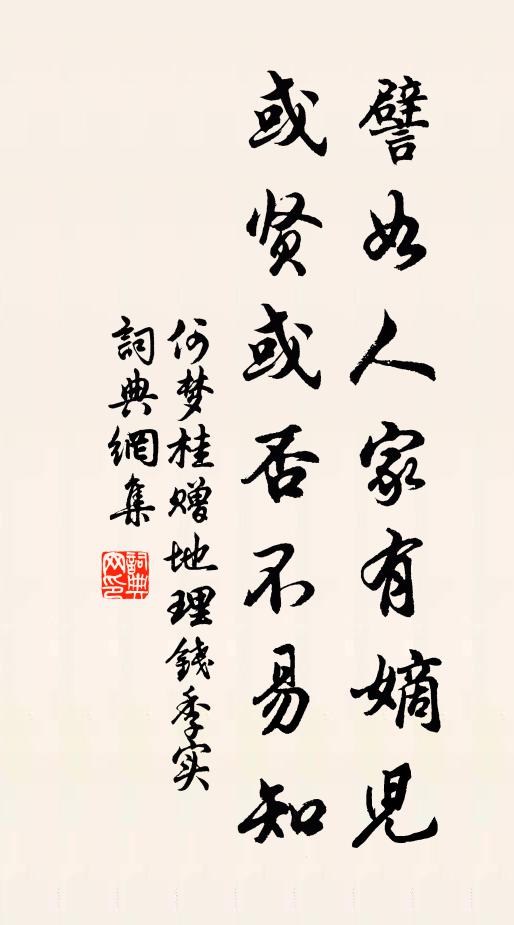 譬如人家有嫡児
或贤或否不易知
何梦桂赠地理錢季实
詞典網集
詞典网印